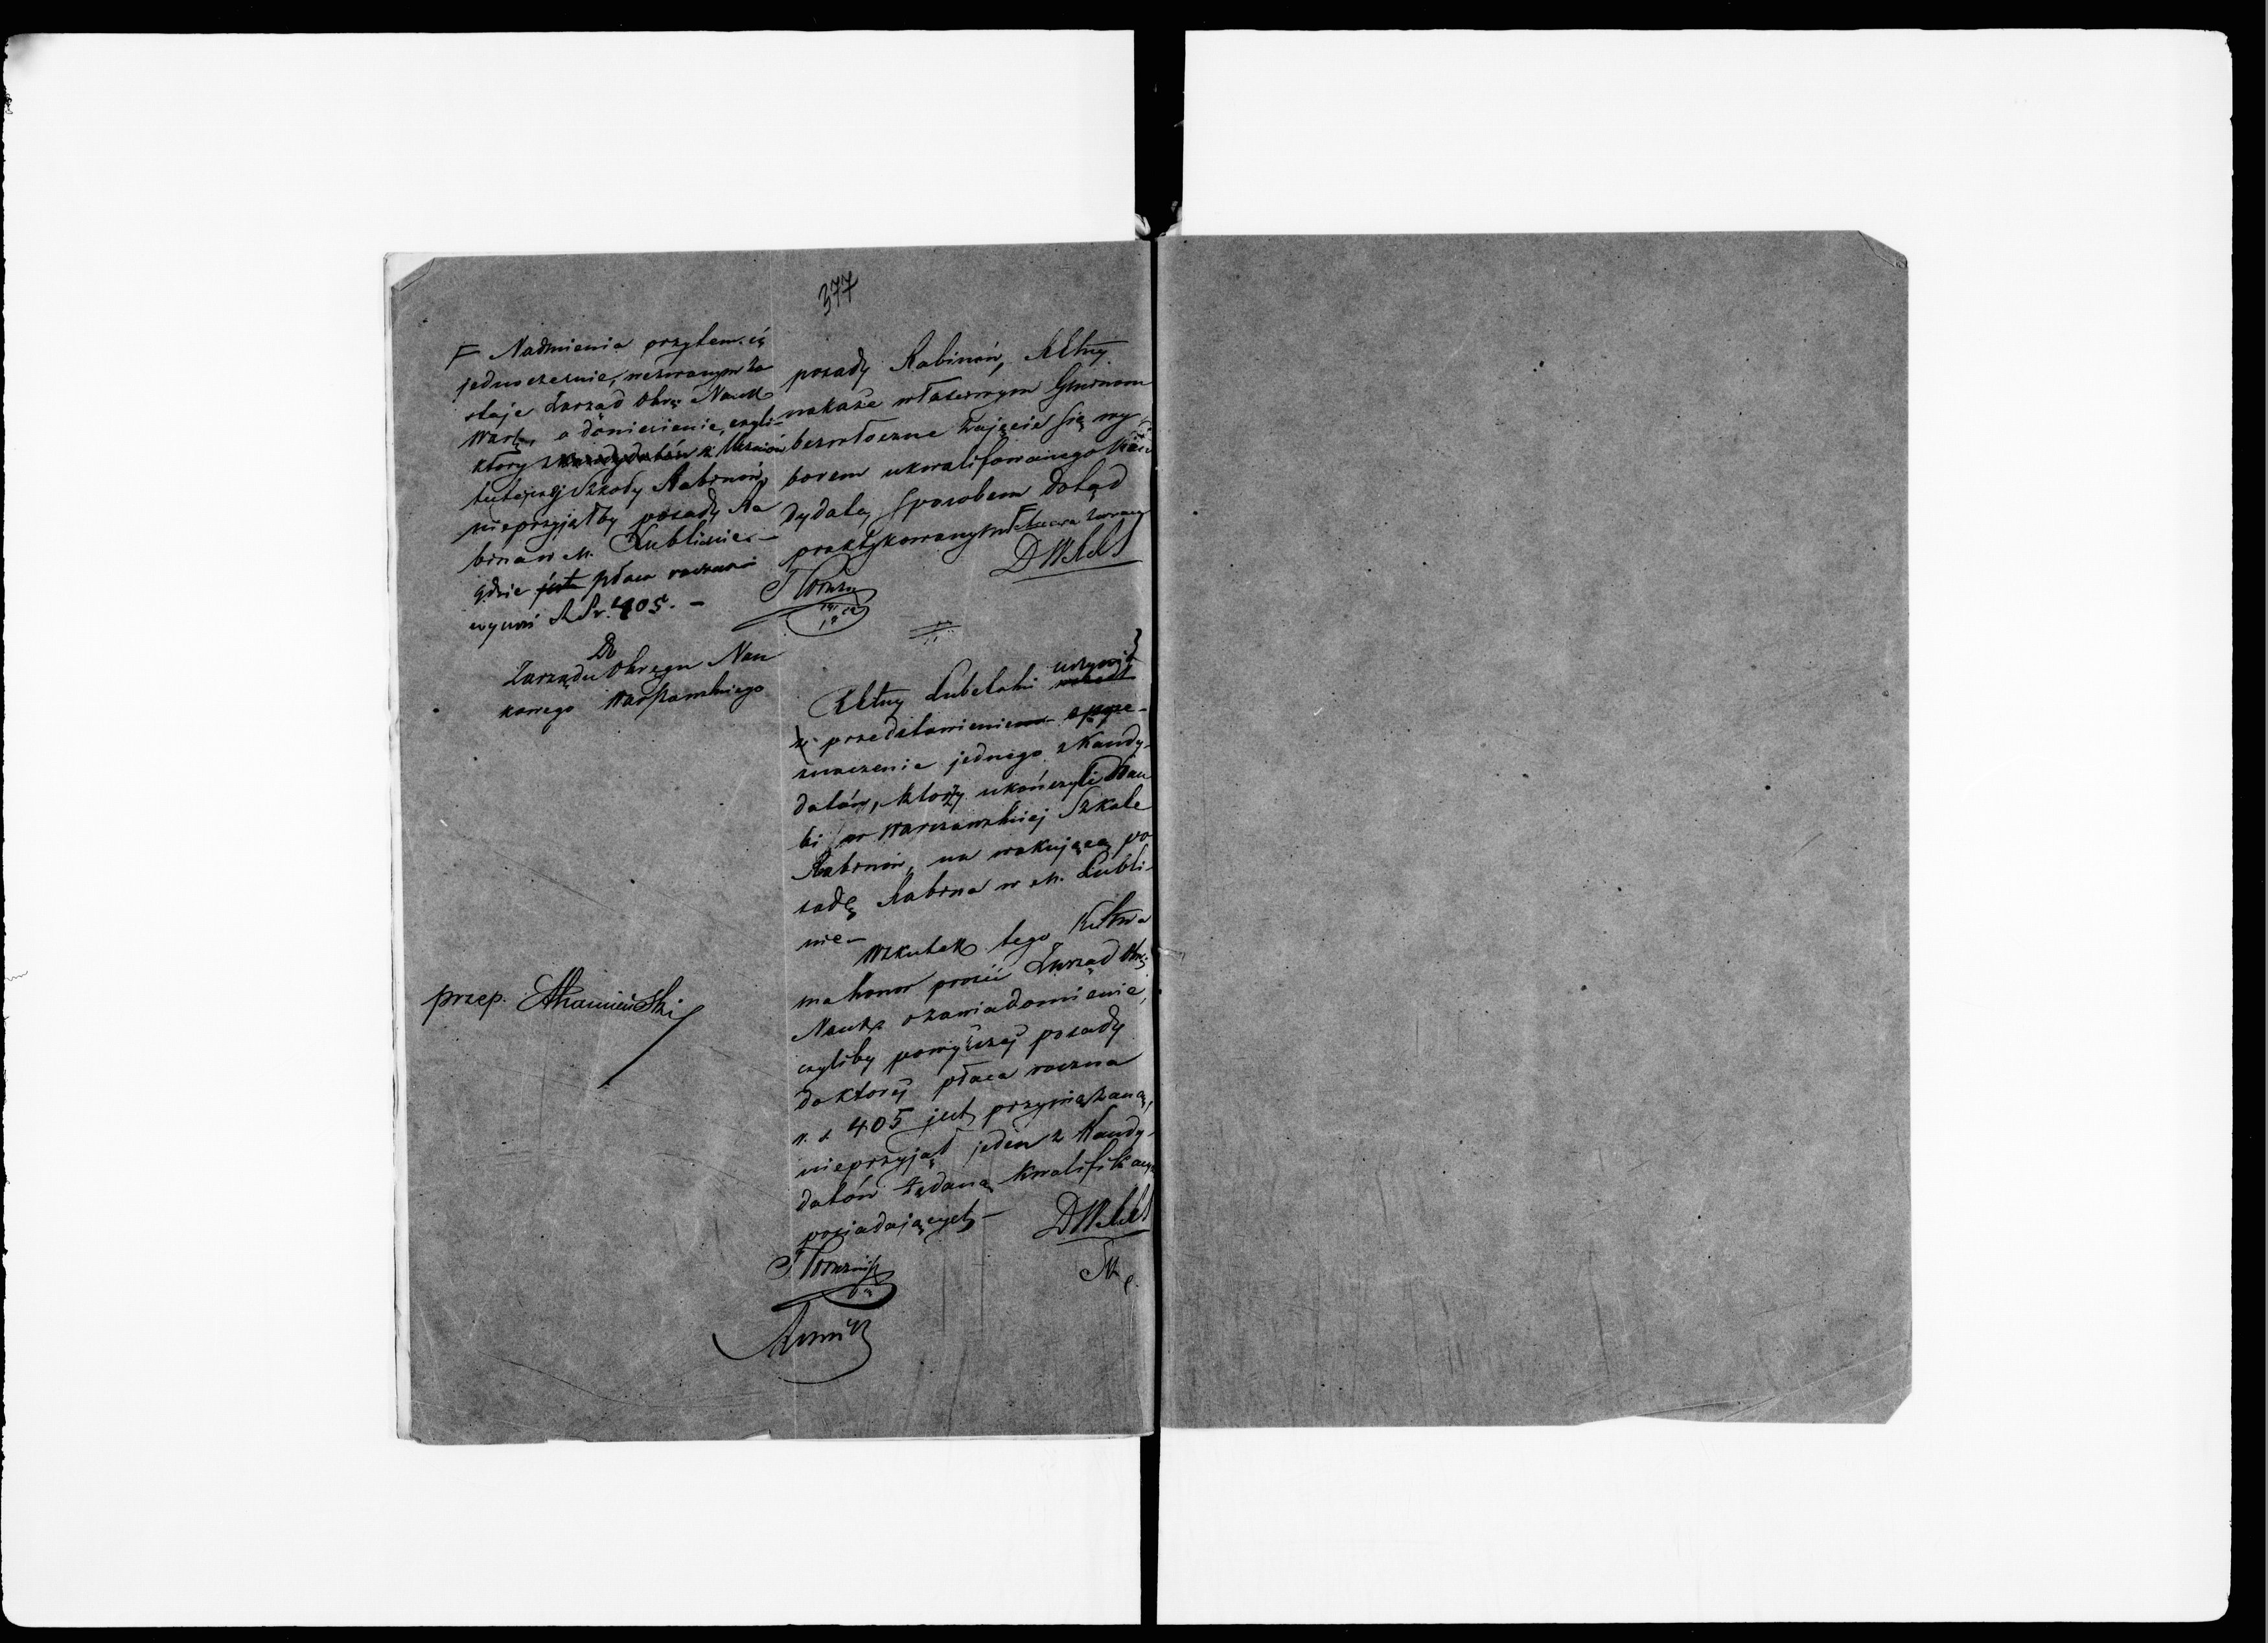 377
F Nadmienia przytem iż
jednocześnie, wezwanym zo
staje Zarząd Okrę. Nauk
Warsz, o doniesienie, czyli-
który z kandydatów z Uczniów
tutejszej Szkoły Rabinów,
nieprzyjąłby posady Ra
bina w M. Lublinie.-
gdzie jest płaca roczna
wynosi RSr. 405. -
Do
Zarządu Okręgu Nau
kowego Warszawskiego
przep. AKamieński
posady Rabinów, RGtny
nakaże właściwym Gminom
bezwłoczne zajęcie się wy
borem ukwalifowanego Kan
dydata, sposobem dotąd
praktykowanym F
DW
Rktny Lubelski uczynił
z przedstawieniem o prze-
znaczenie jednego z Kandy-
datów, którzy ukończyli Nau
ki w Warszawskiej Szkole
Rabinów, na wakującą po
sadę Rabina w M. Lubli-
nie-
Wskutek tego
ma honor prosić Zarząd Okrę
Nauk. o zawiadomienie,
czyliby powyższej posady
do której płaca roczna
r. s. 405 jest przywiązaną,
nieprzyjął jeden z Kandy-
datów żądaną kwalifikacją
posiadających -
DW